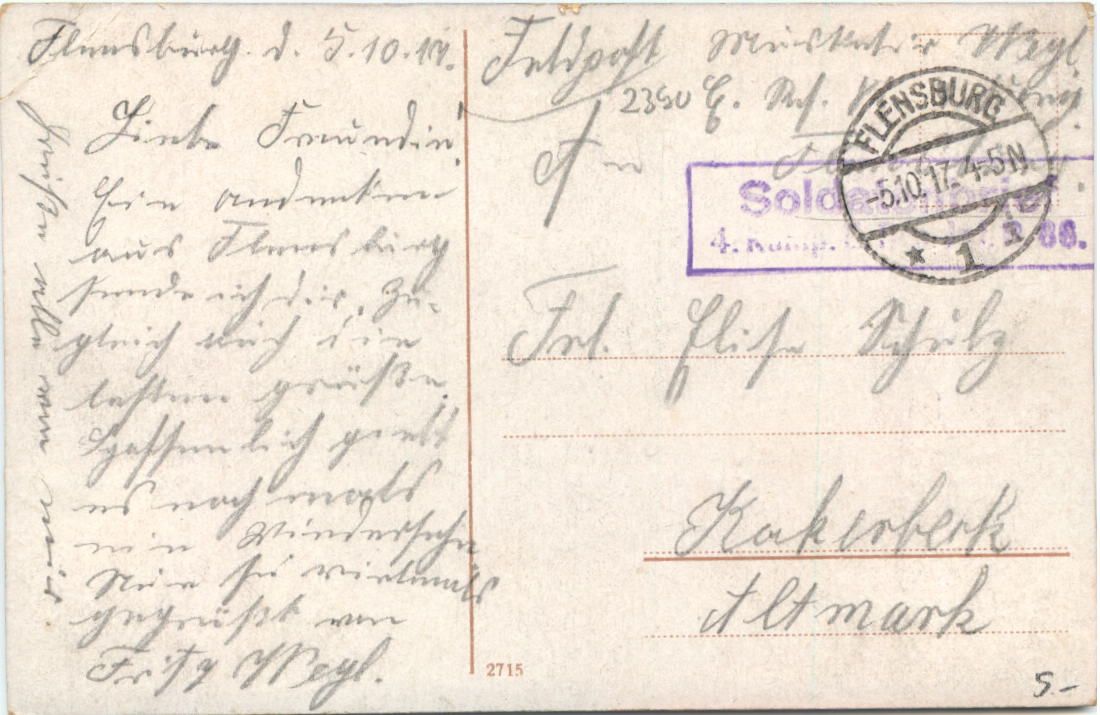 Flensburg. d. 5.10.17.
Liebe Freundin!
Ein andenken
aus Flensburg
sende ich dir, Zu-
gleich auch die
besten grüße.
Hoffenlich giebt
es noch mals
ein Wiedersehn
Nur sei vielmals
gegrüßt von
Fritz Wegl.
grüße alle von mir.
Feldpost Musketir Wegl
2350 E. Ref.
An
FLENSBURG
-5.10.17. 4-5N
* 1
4. Komp. 86.
Frl. Elise Schulz
Kakerbeck
Altmark
2715
5.-